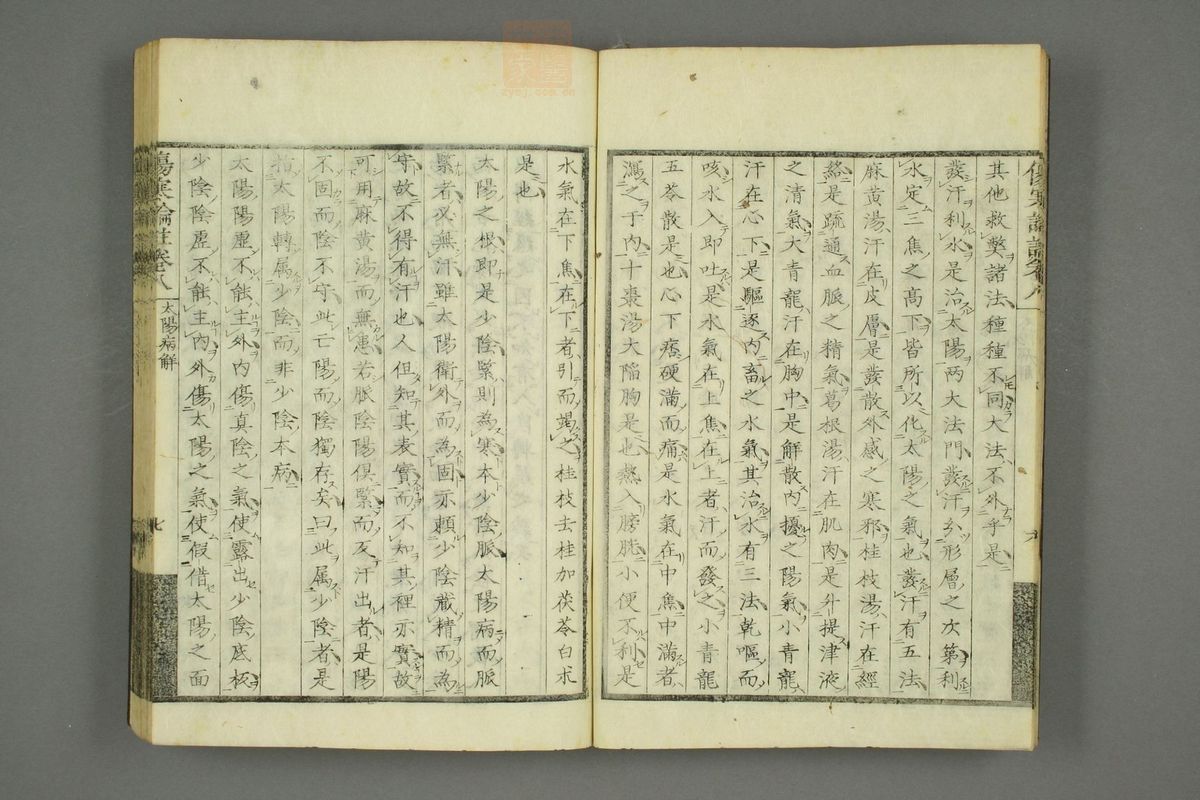 其他救弊諸法種種不同大法不外乎是
發汗利水是治太陽兩大法門發汗分形層之次第利
水定三焦之高下皆所以化太陽之氣也發汗有五法
麻黃湯汗在皮層是發散外感之寒邪桂枝湯汗在經
絡是疏通血脈之精氣葛根湯汗在肌肉是升提津液
之清氣大青龍汗在胸中是解散內擾之陽氣小青龍
汗在心下是驅逐內畜之水氣其治水有三法乾嘔而
咳水入即吐是水氣在上焦在上者汗而發之小青龍
五苓散是也心下痞硬滿而痛是水氣在中焦中滿者
瀉之于內十棗湯大陷胸是也熱入膀胱小便不利是
水氣在下焦在下者引而竭之桂枝去桂加茯苓白朮
是也
太陽之根即是少陰緊則為寒本少陰脈太陽病而脈
緊者必無汗雖太陽衛外而為固亦賴少陰藏精而為
守故不得有汗也人但知其表實而不知其裡亦實故
可用麻黃湯而無患若脈陰陽俱緊而反汗出者是陽
不固而陰不守此亡陽而陰獨存矣曰此属少陰者是
指太陽轉属少陰而非少陰本病
太陽陽虛不能主外內傷真陰之氣便露出少陰底板
少陰陰虛不能主內外傷太陽之氣便假借太陽之面
傷寒論註卷八
太陽病解
七